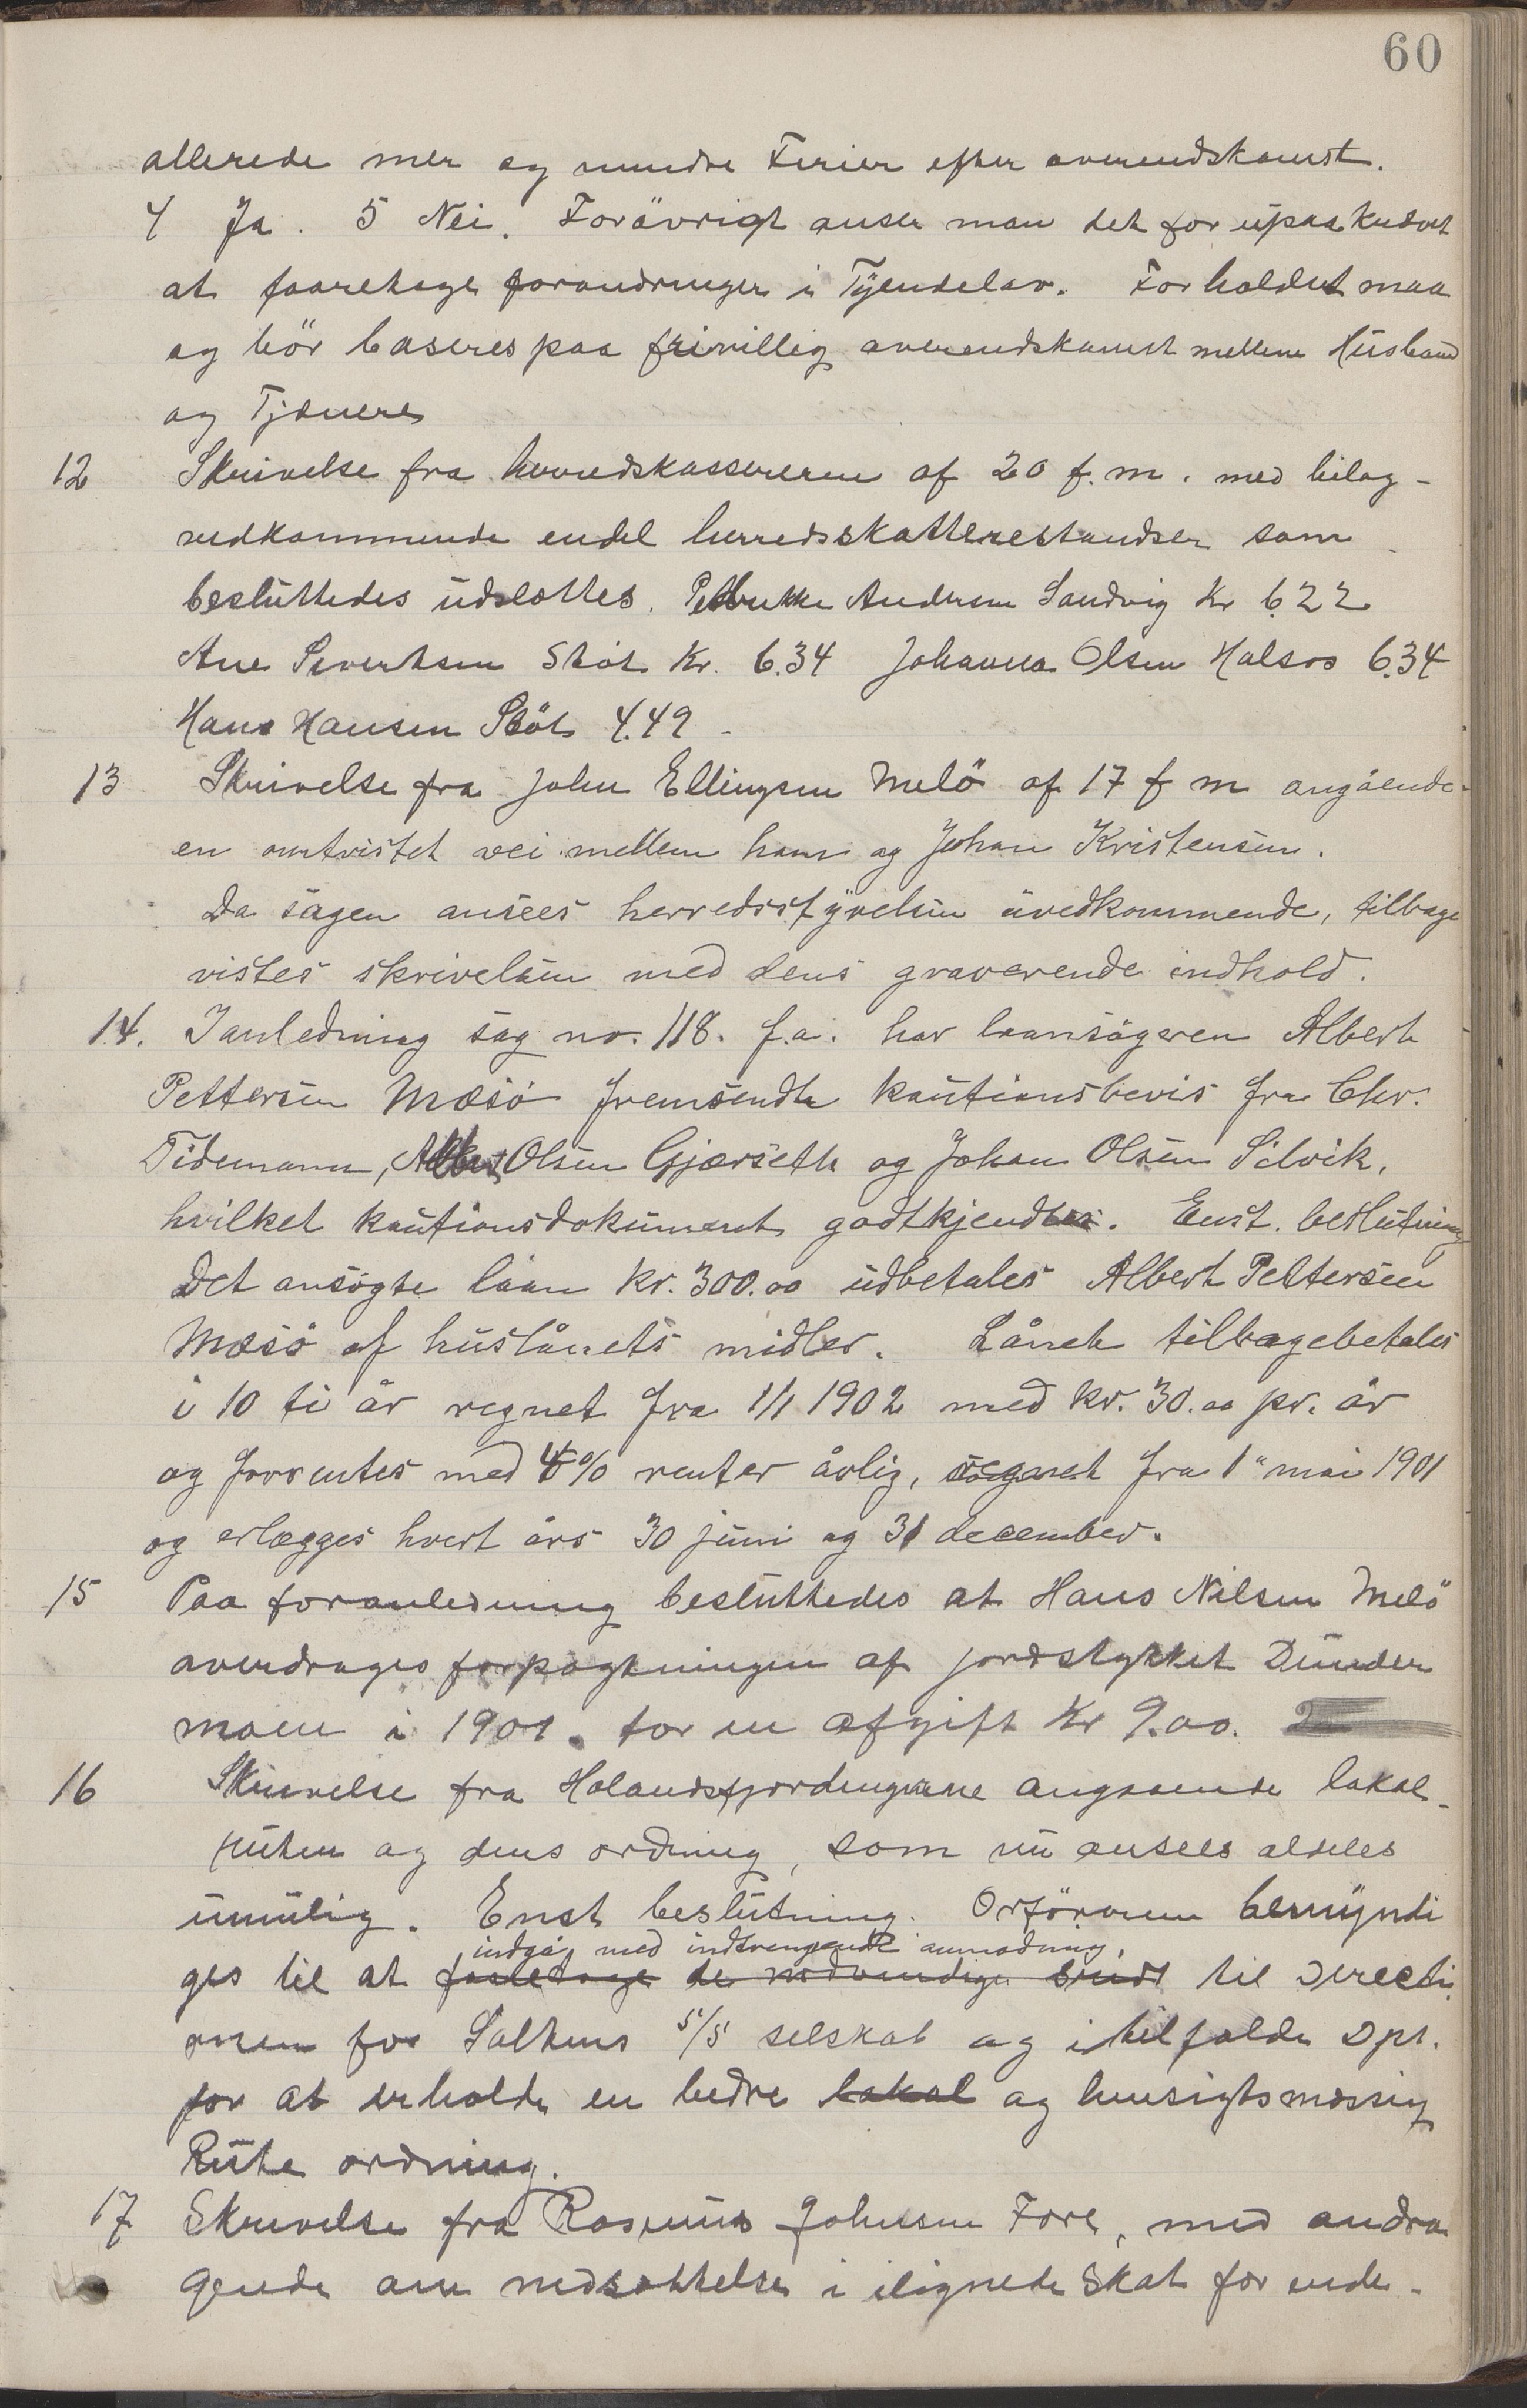 60
allerede mer og mindre Ferier efter overendskomst.
4 Ja. 5 Nei. Forövrigt anser man det for upaakrævet
at foaretage forandringer i Tyendelov. Forholdet maa
og bör baseres paa frivillig overendskomst mellem Husbond
og Tjenere
12 Skrivelse fra herredskassereren af 20 f.m. med bilag -
vedkommende endel herredsskatterestandser som
besluttedes udslettes. Petrikke Andersen Sandvig Kr 6.22
Ane Sivertsen Stöt Kr. 6.34 Johanna Olsen Halsos 6.34
Hans Hansen Stöt 4.49 -
13 Skrivelse fra John Ellingsen Melö af 17 f m angående
en omtvistet vei mellem ham og Johan Kristensen.
Da sagen ansees herredsstyrelsen uvedkommende, tilbage
vistes skrivelsen med dens graverende indhold.
14. Ianledning sag no. 118. f.a. har laansögeren Albert
Pettersen Mæsö fremsendt kautionsbevis fra Chr.
Tidemann, Albert Olsen Gjærseth og Johan Olsen Selvik,
hvilket kautionsdokument godtkjendtes. Enst. beslutning
Det ansögte låan kr. 300.00 udbetales Albert Pettersen
Mæsö af huslånets midler. Lånet tilbagebetales
i 10 ti år regnet fra 1/1 1902 med kr. 30.00 pr. år
og forrentes med 4% renter årlig, regnet fra 1" mai 1901
og erlægges hvert års 30 juni og 31 december.
15 Paa foranledning besluttedes at Hans Nilsen Melö
overdrages forpagtningen af jordstykket Dunder
moen i 1901. for en afgift Kr 9.00.
16 Skrivelse fra Holandsfjordingerne angaaende lokal-
ruten og dens ordning, som nu ansees aldeles
umulig. Enst beslutning. Orföreren bemyndi
indgå med indtrengende anmodning,
ges til at foretage de nödvendige skridt til Directi
onen for Saltens S/S selskab og i tilfælde Dpt.
for at erholde en bedre lokal og hensigtsmessig
Rute ordning.
17 Skrivelse fra Rasmus Johnsen Fore, med andra
gende om nedsættelse i ilignede Skat for inde-